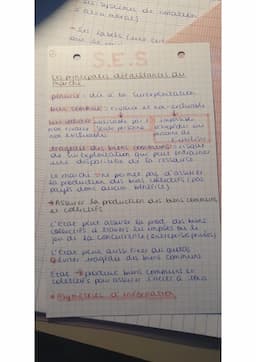 des systèmes de notation
S.E.S
Les principales défaillances du
marché
pénurie : dû à la surexploitation
bien commun : rivaux et non-excluable
non rivaux
non excluable
seule personne
impossible
d'empêcher une
personne de
tragédie des biens communs : risque
de surexploitation qui peut entraîner
une disparition de la ressource
Le marché ne permet pas d'assurer
la production des biens collectifs (pas
payés donc aucun bénéfice)
→ Assurer la production des biens communs
et collectifs
L'État peut assurer la prod. des biens
collectifs à travers les impôts ou le
jeu de la concurrence (entreprise privée)
L'État peut aussi fixer des quotas
éviter tragédie des biens communs
État → produire biens communs et
collectifs pour assurer l'accès à tous
Asymétries d'information